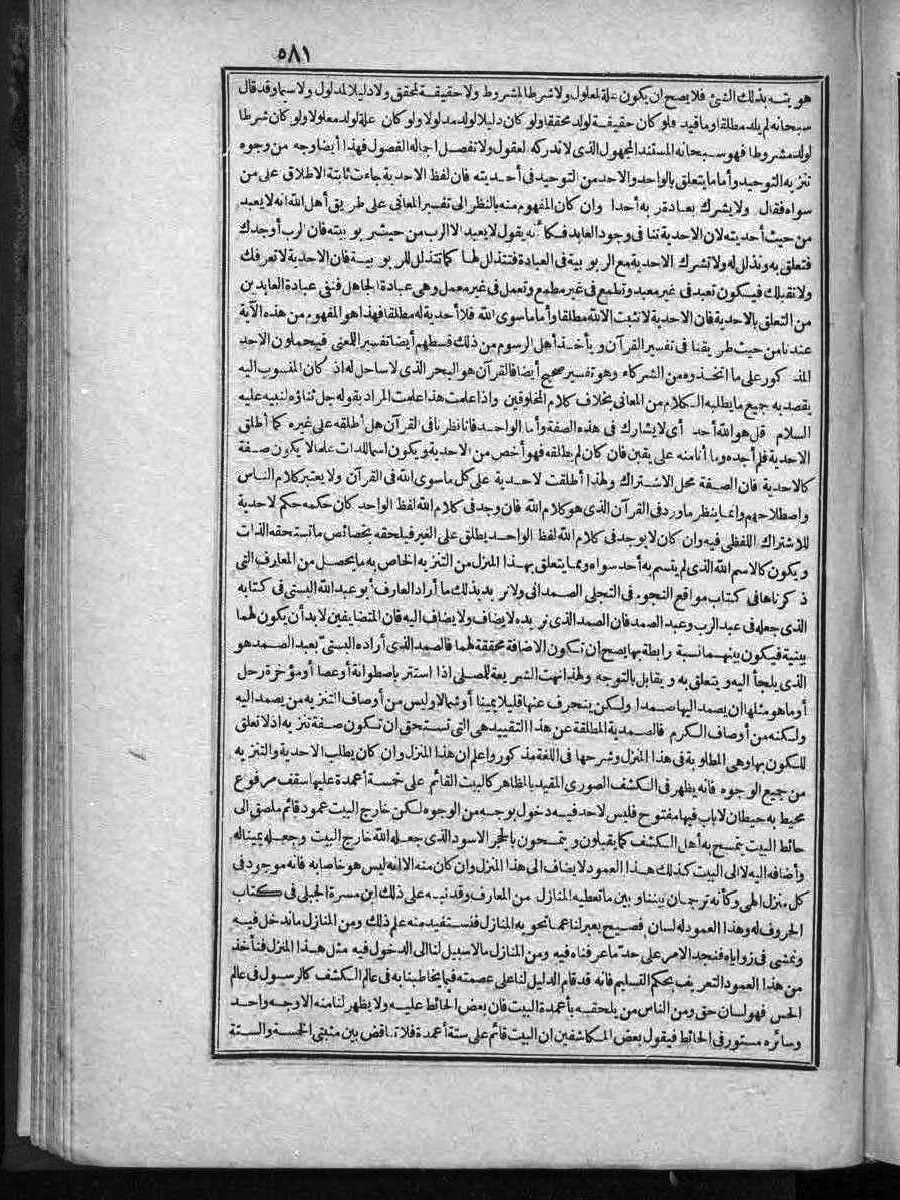 ٥٨١
هو يتسه بذلك الشئ فلا يصح ان يكون علة لمعلول ولا شرطا لمشروط ولا حقيقة لمحقق ولا دليلا لمدلول ولا سيما وقد قال
سبحانه لم يلد مطلقا وما قيد فلو كان حقيقة لولد محققا ولو كان دليلا لولد مدلولا ولو كان علة لولد معلولا ولو كان شرطا
لولد مشروطا فهو سبحانه المستند المجهول الذى لا تدركه العقول ولا تفصل اجماله الفصول فهذا أيضا وجه من وجوه
تنزيه التوحيد وأما ما يتعلق بالواحد والاحد من التوحيد فى أحديته فان لفظ الاحدية جاءت ثابتة الاطلاق على من
سواه فقال ولا يشرك بعبادة ربه أحدا وان كان المفهوم منه بالنظر الى تفسير المعانى على طريق أهل الله انه لا يعبد
من حيث أحديته لان الاحدية تنافى وجود العابد فكأنه يقول لا يعبد الا الرب من حيث ربوبيته فان الرب أوجدك
فتعلق به وتذلل له ولا تشرك الاحدية مع الربوبية فى العبادة فتتذلل لها كما تتذلل للربوبية فان الاحدية لا تعرفك
ولا تقبلك فيكون تعبد فى غير معبد وتطمع فى غير مطمع وتعمل فى غير معمل وهى عبادة الجاهل فنفى عبادة العابدين
من التعلق بالاحدية فان الاحدية لا تثبت الا لله مطلقا وأما ما سوى الله فلا أحدية له مطلقا فهذا هو المفهوم من هذه الآية
عندنا من حيث طريقنا فى تفسير القرآن ويأخذ أهل الرسوم من ذلك قسطهم أيضا تفسيرا للمعنى فيحملون الاحد
المذكور على ما اتخذوه من الشركاء وهو تفسير صحيح أيضا فالقرآن هو البحر الذى لا ساحل له اذ كان المنسوب اليه
يقصد به جميع ما يطلبه الكلام من المعانى بخلاف كلام المخلوقين واذا علمت هذا علمت المراد بقوله جل ثناؤه لنبيه عليه
السلام قل هو الله أحد أى لا يشارك فى هذه الصفة وأما الواحد فانا نظرنا فى القرآن هل أطلقه على غيره كما أطلق
الاحدية فلم أجده وما أنا منه على يقين فان كان لم يطلقه فهو أخص من الاحدية ويكون اسما للذات علما لا يكون صفة
كالاحدية فان الصفة محل الاشتراك ولهذا أطلقت الاحدية على كل ما سوى الله فى القرآن ولا يعتبر كلام الناس
واصطلاحهم وانما ينظر ما ورد فى القرآن الذى هو كلام الله فان وجد فى كلام الله لفظ الواحد كان حكمه حكم الاحدية
للاشتراك اللفظى فيه وان كان لا يوجد فى كلام الله لفظ الواحد يطلق على الغير فيلحقه بخصائص ما تستحقه الذات
ويكون كالاسم الله الذى لم يتسم به أحد سواه ومما يتعلق بهذا المنزل من التنزيه الخاص به ما يحصل من المعارف التى
ذكرناها فى كتاب مواقع النجوم فى التجلى الصمدانى ولا نريد بذلك ما أراد العارف أبو عبد الله البستى فى كتابه
الذى جعله فى عبد الرب وعبد الصمد فان الصمد الذى نريده لا يضاف ولا يضاف اليه فان المتضايفين لا بد أن يكون لهما
بينية فيكون بينهما نسبة رابطة بها يصح ان تكون الاضافة محققة لهما فالصمد الذى أراده البستى بعبد الصمد هو
الذى يلجأ اليه ويتعلق به ويقابل بالتوجه ولهذا نهت الشريعة للمصلى اذا استتر باصطوانة أو عصا أو مؤخرة رحل
أو ما هو مثلها ان يصمد اليها صمدا ولكن ينحرف عنها قليلا يمينا أو شمالا وليس من أوصاف التنزيه من يصمد اليه
ولكنه من أوصاف الكرم فالصمدية المطلقة عن هذا التقييد هى التى تستحق ان تكون صفة تنزيه اذ لا تعلق
للكون بها وهى المطلوبة فى هذا المنزل وشرحها فى اللغة مذكور واعلم ان هذا المنزل وان كان يطلب الاحدية والتنزيه
من جميع الوجوه فانه يظهر فى الكشف الصورى المقيد بالمظاهر كالبيت القائم على خمسة أعمدة عليها سقف مرفوع
محيط به حيطان لا باب فيها مفتوح فليس لاحد فيه دخول بوجه من الوجوه لكن خارج البيت عمود قائم ملصق الى
حائط البيت يتمسح به أهل الكشف كما يقبلون ويتمسحون بالحجر الاسود الذى جعله الله خارج البيت وجعله يمينا له
وأضافه اليه لا الى البيت كذلك هذا العمود لا يضاف الى هذا المنزل وان كان منه الا انه ليس هو خاصا به فانه موجود فى
كل منزل الهى وكأنه ترجمان بيننا وبين ما تعطيه المنازل من المعارف وقد نبه على ذلك ابن مسرة الجبلى فى كتاب
الحروف له وهذا العمود له لسان فصيح يعبر لنا عما تحويه المنازل فنستفيد منه علم ذلك ومن المنازل ما ندخل فيه
ونمشى فى زواياه فنجد الامر على حد ما عرفناه فيه ومن المنازل ما لا سبيل لنا الى الدخول فيه مثل هذا المنزل فنأخذ
من هذا العمود التعريف بحكم التسليم فانه قد قام الدليل لنا على عصمته فيما يخاطبنا به فى عالم الكشف كالرسول فى عالم
الحس فهو لسان حق ومن الناس من يلحقه بأعمدة البيت فان بعض الحائط عليه ولا يظهر لنا منه الا وجه واحد
وسائره مستور فى الحائط فيقول بعض المكاشفين ان البيت قائم على ستة أعمدة فلا تناقض بين مثبتى الخمسة والستة